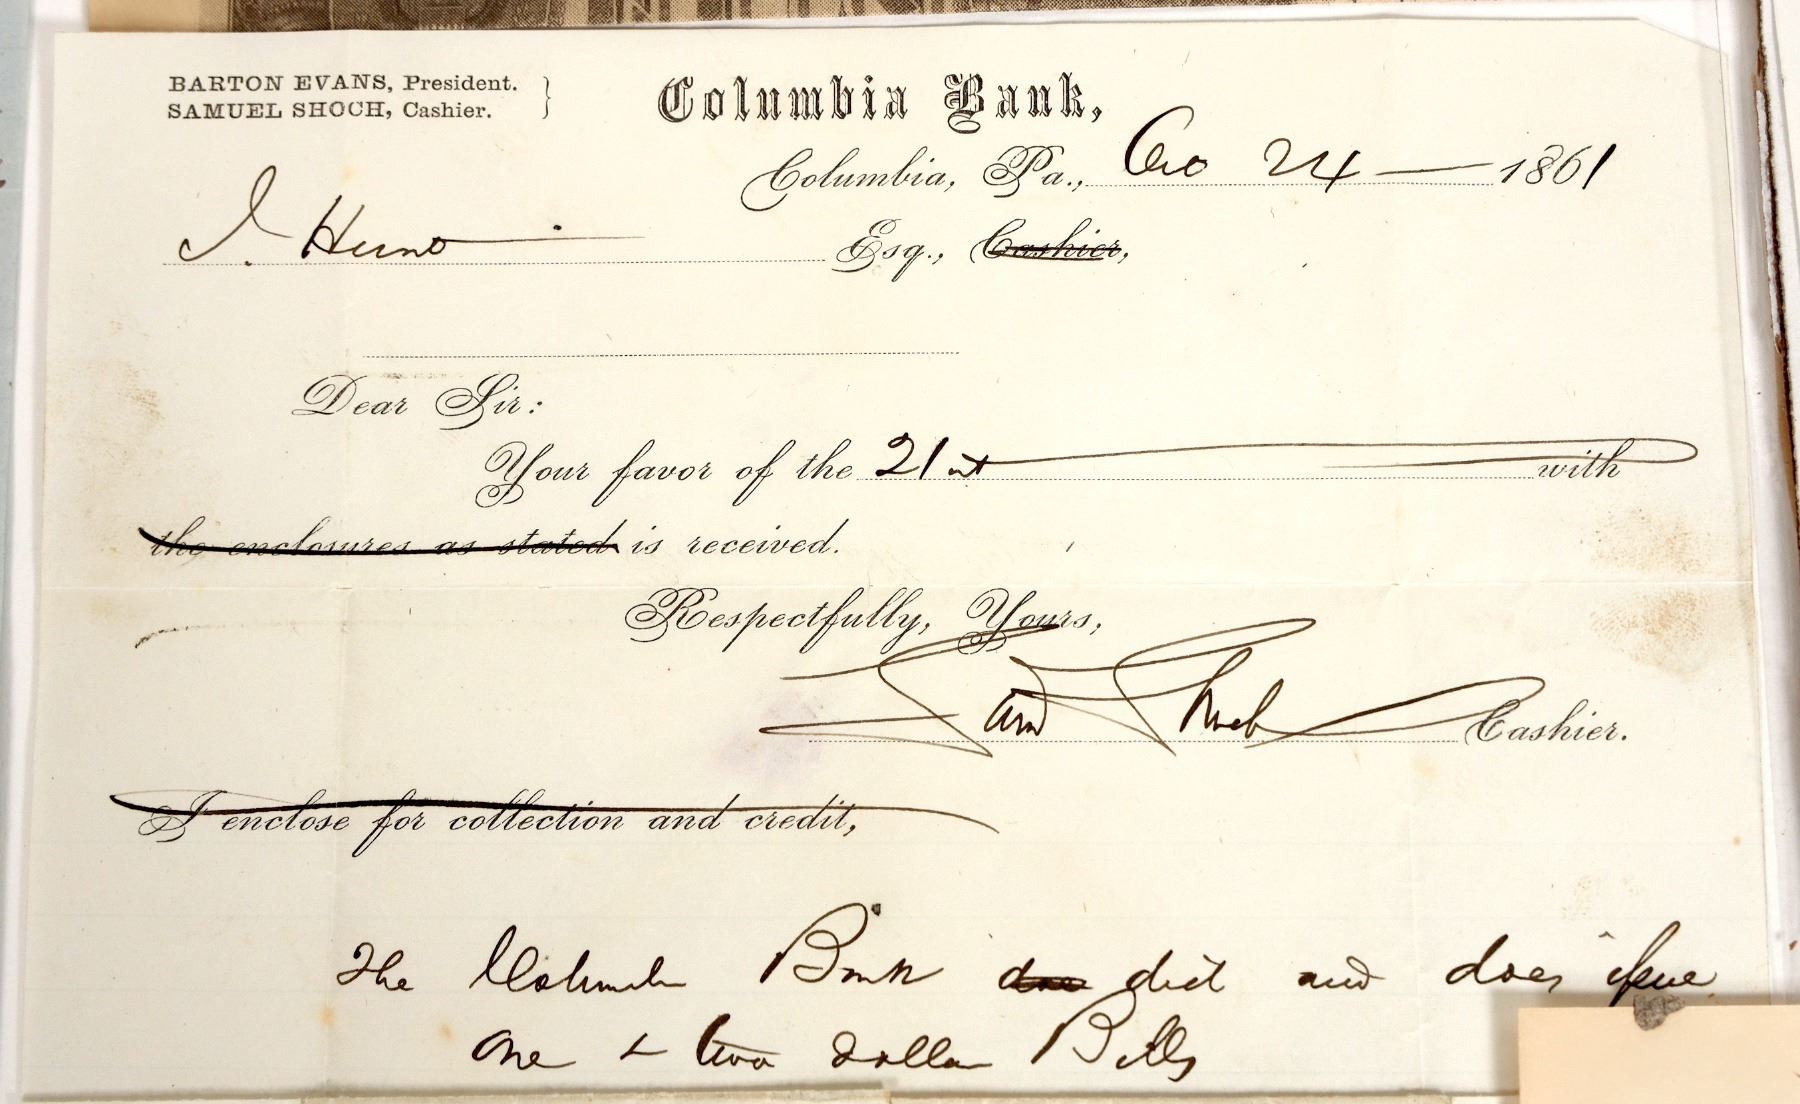 BARTON EVANS, President.
SAMUEL SHOCH, Cashier.
Columbia Bank,
Columbia, Pa., 24 1861
J. Hunt Esq., Cashier,
Dear Sir:
Your favor of the 21st with
the enclosures as stated is received.
Respectfully, Yours,
Saml Shoch Cashier.
I enclose for collection and credit,
The Columbia Bank does did and does issue
one & two dollar Bills